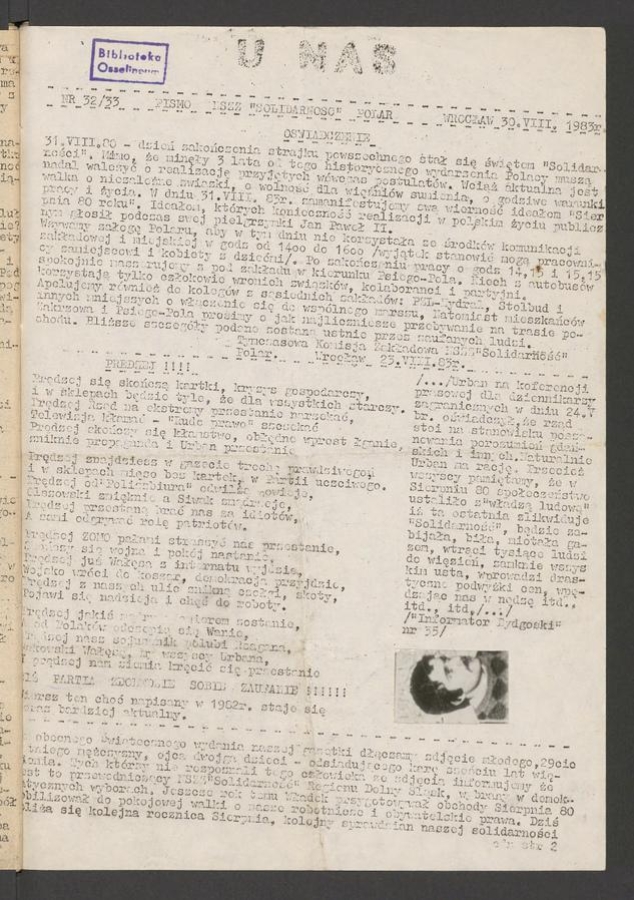 Biblioteka
Ossolineum
U NAS
NR 32/33 PISMO NSZZ "SOLIDARNOSC" POLAR WROCŁAW 30.VIII. 1983r.
OŚWIADCZENIE
31.VIII.80 - dzień zakończenia strajku powszechnego stał się świętem "Solidar-
ności". Mimo, że minęły 3 lata od tego historycznego wydarzenia Polacy muszą
nadal walczyć o realizację przyjętych wówczas postulatów. Wciąż aktualna jest
walka o niezależne związki, o wolność dla więźniów sumienia, o godziwe warunki
pracy i życia. W dniu 31.VIII. 83r. zamanifestujemy swą wierność ideałom "Sier
pnia 80 roku". Ideałom, których konieczność realizacji w polskim życiu publicz
nym głosił podczas swej pielgrzymki Jan Paweł II.
Wzywamy załogę Polaru, aby w tym dniu nie korzystała ze środków komunikacji
zakładowej i miejskiej w godz od 14oo do 16oo /wyjątek stanowić mogą pracowni-
cy zamiejscowi i kobiety z dziećmi/. Po zakończeniu pracy o godz 14,15 i 15,15
spokojnie maszerujmy z pod zakładu w kierunku Psiego-Pola. Niech z autobusów
korzystają tylko członkowie wronich związków, kolaboranci i partyjni.
Apelujemy również do kolegów z sąsiednich zakładów: PZL-Hydral, Stolbud i
innych mniejszych o włączenie się do wspólnego marszu, Natomiast mieszkańców
Zakrzowa i Psiego-Pola prosimy o jak najliczniejsze przebywanie na trasie po-
chodu. Bliższe szczegóły podane zostaną ustnie przez zaufanych ludzi.
Tymczasowa Komisja Zakładowa NSZZ"Solidarność"
Polar. Wrocław 23.VIII.83r.
PRĘDZEJ !!!!
Prędzej się skończą kartki, kryzys gospodarczy,
i w sklepach będzie tyle, że dla wszystkich starczy.
Prędzej Rząd na ekstremę przestanie narzekać,
Telewizja kłamać - "Rude prawo" szczekać
Prędzej skończy się kłamstwo, obłędne wprost łganie,
zniknie propaganda i Urban przestanie
Prędzej znajdziesz w gazecie trochę prawdziwego,
i w sklepach mięso bez kartek, w Partii uczciwego.
Prędzej od "Politbiura" odwilżą powieje,
Olszowski zmięknie a Siwak zmądrzeje,
Prędzej przestaną brać nas za idiotów,
A sami odgrywać rolę patriotów.
Prędzej ZOMO pałami straszyć nas przestanie,
się wojna i pokój nastanie,
Prędzej już Wałęsa z internatu wyjdzie,
Wojsko wróci do koszar, demokracja przyjdzie,
Prędzej z naszych ulic znikną czołgi, skoty,
Pojawi się nadzieja i chęć do roboty.
Prędzej jakiś zostanie,
od Polaków się Warta,
Prędzej nasz sojusznik polubi Reagana,
Rakowski Wałęsę, my wszyscy Urbana,
I prędzej nam ziemia kręcić się przestanie
NIŻ PARTIA ZDOBĘDZIE SOBIE ZAUFANIE !!!!!!
Wiersz ten choć napisany w 1982r. staje się
coraz bardziej aktualny.
/.../Urban na koferencji
prasowej dla dziennikarzy
zagranicznych w dniu 24.V
br. oświadczył,że rząd
stoi na stanowisku posza-
nowania porozumień gdań-
skich i innych.Naturalnie
Urban ma rację. Przecież
wszyscy pamiętamy, że w
Sierpniu 80 społeczeństwo
ustaliło z"władzą ludową"
iż ta ostatnia zlikwiduje
"Solidarność", będzie za-
bijała, biła, miotała ga-
zem, wtrąci tysiące ludzi
do więzień, zamknie wszys
kim usta, wprowadzi dras-
tyczne podwyżki cen, wpę-
dzając nas w nędzę itd.,
itd., itd,/.../
/"Informator Bydgoski"
nr 35/
obecnego świątecznego wydania naszej gazetki dłączamy zdjęcie młodego,29cio
letniego mężczyzny, ojca dwojga dzieci - odsiadującego karę sześciu lat wię-
zienia. Tych którzy nie rozpoznali tego człowieka ze zdjęcia informujemy że
jest to przewodniczący NSZZ"Solidarność" Regionu Dolny Śląsk, w demok-
ratycznych wyborach. Jeszcze rok temu Władek przygotowywał obchody Sierpnia 80
mobilizował do pokojowej walki o nasze robotnicze i obywatelskie prawa. Dziś
zbliża się kolejna rocznica Sierpnia, kolejny sprawdzian naszej solidarności
cdn str 2